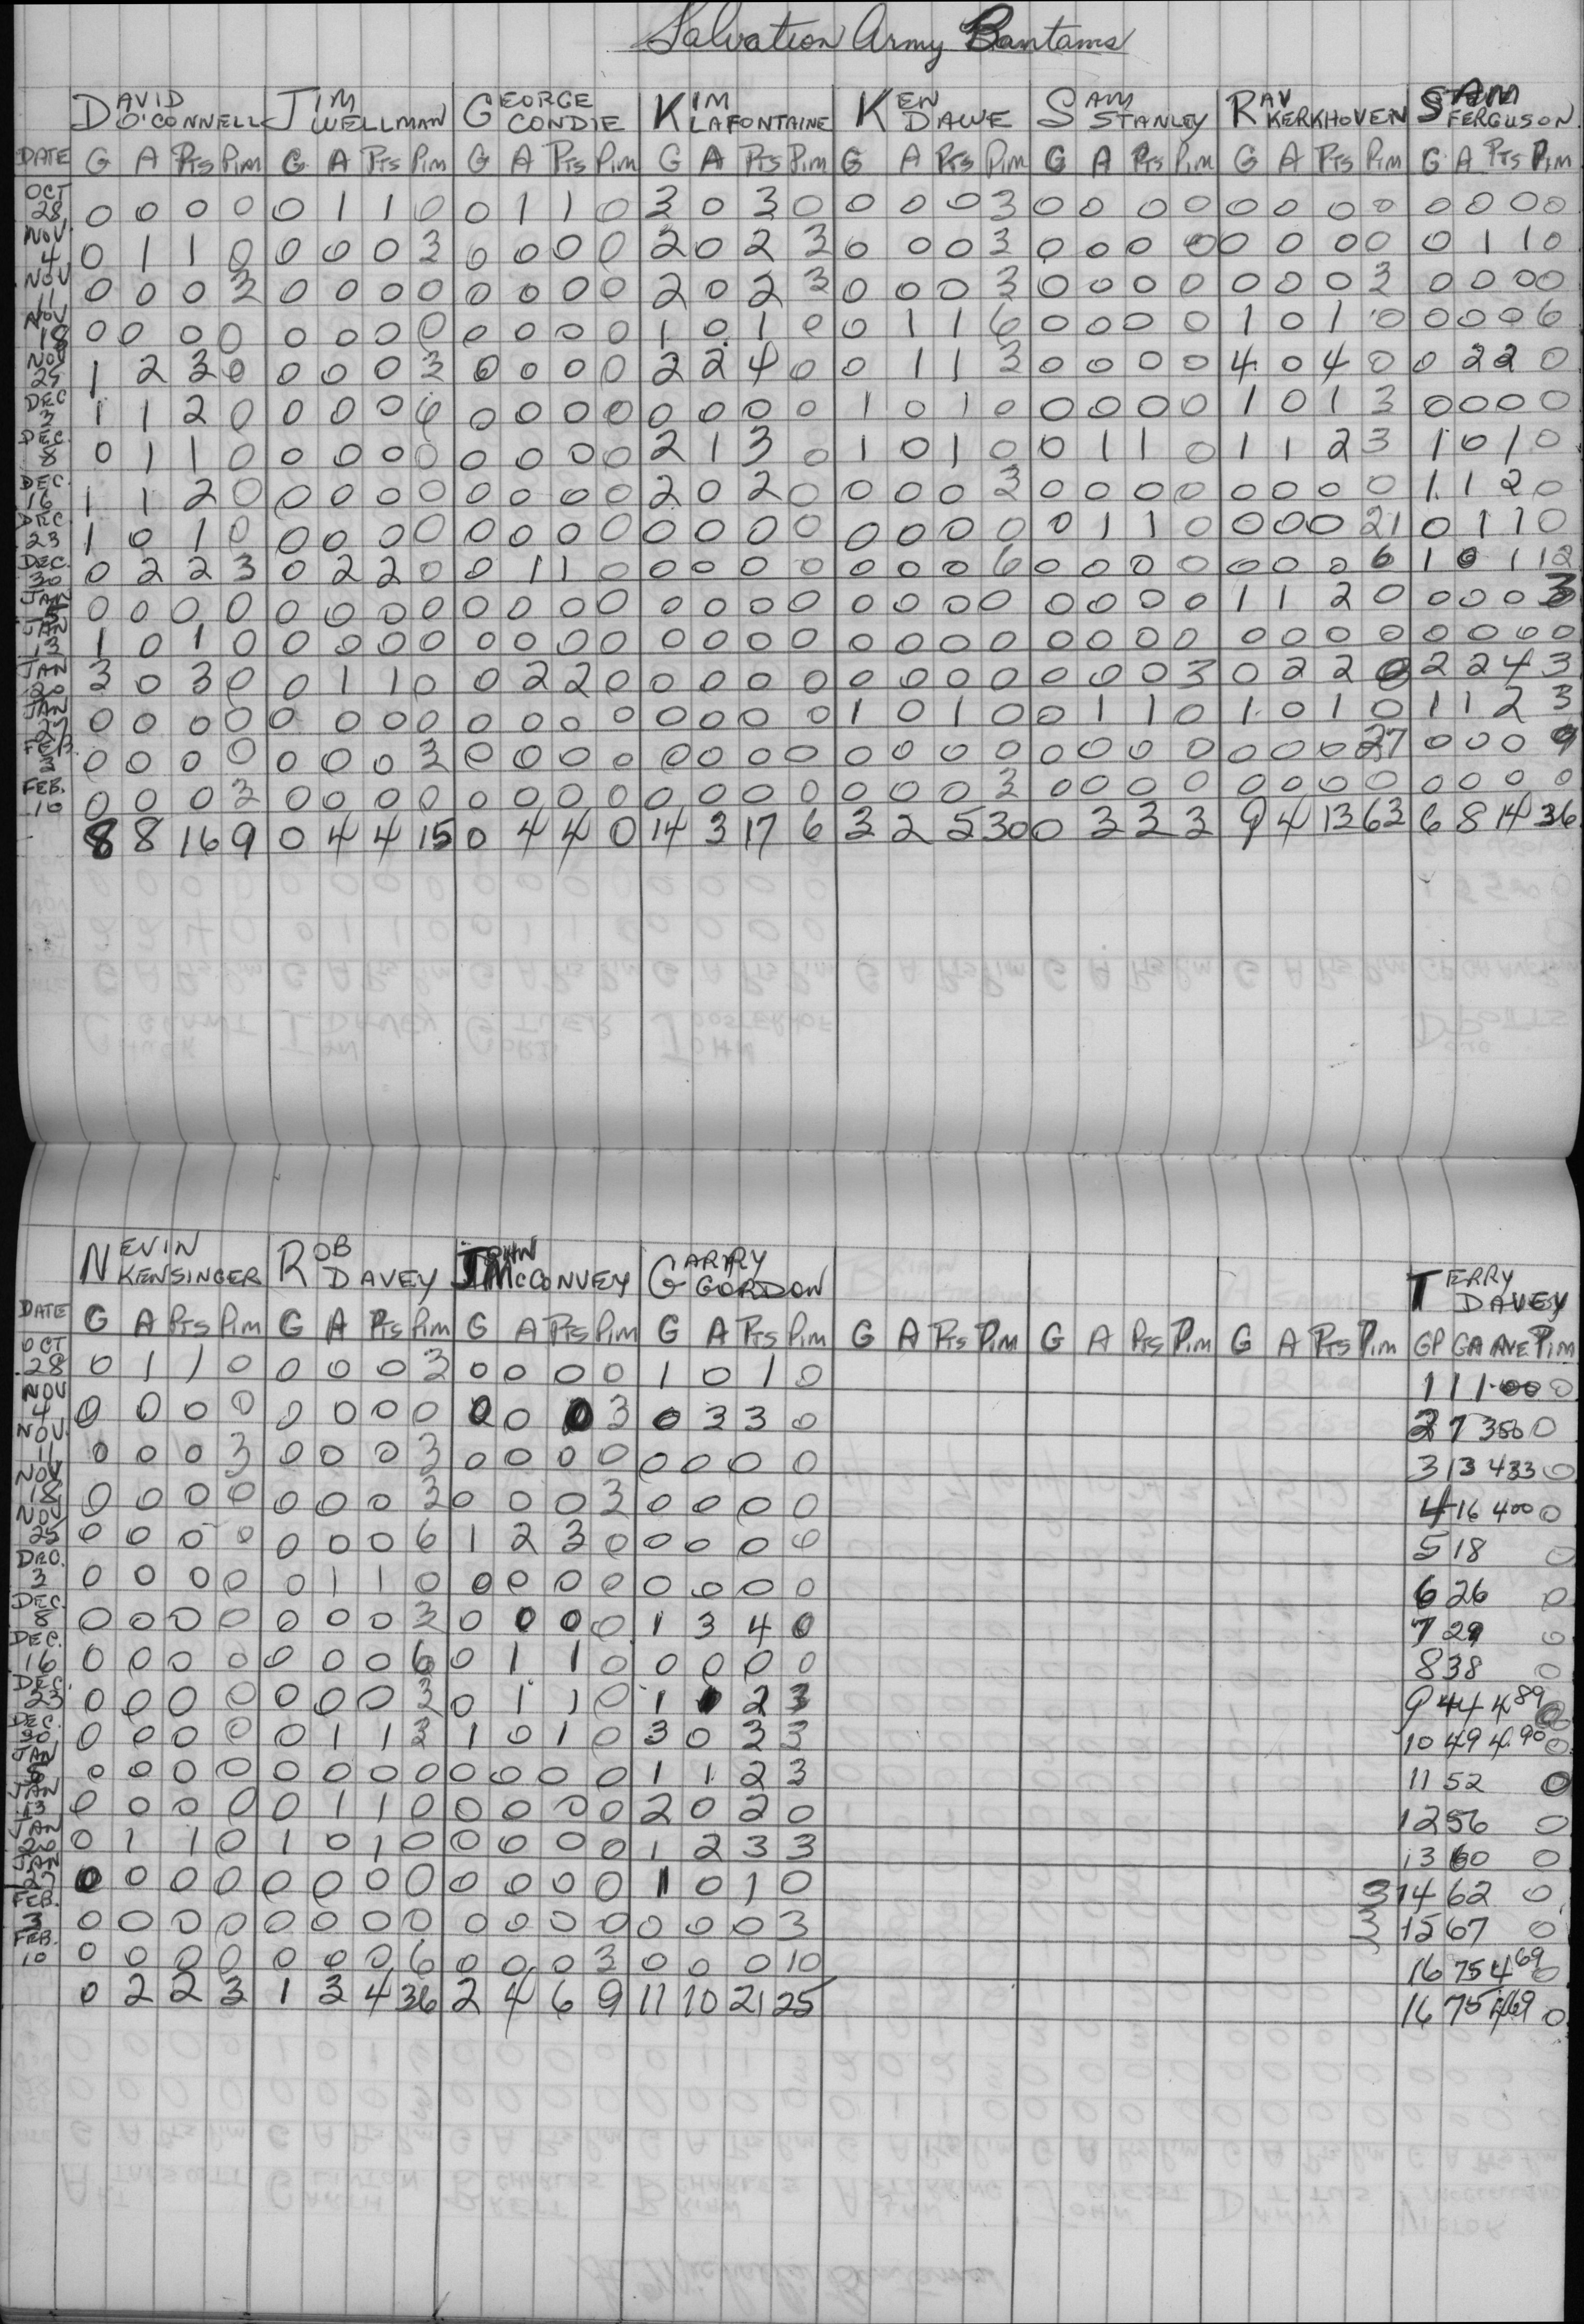 Salvation Army Bantams
DAVID O'CONNELL JIM WELLMAN GEORGE CONDIE KIM LAFONTAINE KEN DAWE SAM STANLEY RAY KERKHOVEN SAM FERGUSON
DATE G A PTS PIM G A PTS PIM G A PTS PIM G A PTS PIM G A PTS PIM G A PTS PIM G A PTS PIM G A PTS PIM
OCT 28 0 0 0 0 0 1 1 0 0 1 1 0 3 0 3 0 0 0 0 3 0 0 0 0 0 0 0 0 0 0 0 0
NOV 4 0 1 1 0 0 0 0 3 0 0 0 0 2 0 2 3 0 0 0 3 0 0 0 0 0 0 0 0 0 1 1 0
NOV 11 0 0 0 3 0 0 0 0 0 0 0 0 2 0 2 3 0 0 0 3 0 0 0 0 0 0 0 3 0 0 0 0
NOV 18 0 0 0 0 0 0 0 0 0 0 0 0 1 0 1 0 0 1 1 6 0 0 0 0 1 0 1 0 0 0 0 6
NOV 25 1 2 3 0 0 0 0 3 0 0 0 0 2 2 4 0 0 1 1 3 0 0 0 0 4 0 4 0 0 2 2 0
DEC 3 1 1 2 0 0 0 0 6 0 0 0 0 0 0 0 0 1 0 1 0 0 0 0 0 1 0 1 3 0 0 0 0
DEC. 8 0 1 1 0 0 0 0 0 0 0 0 0 2 1 3 0 1 0 1 0 0 1 1 0 1 1 2 3 1 0 1 0
DEC. 16 1 1 2 0 0 0 0 0 0 0 0 0 2 0 2 0 0 0 0 3 0 0 0 0 0 0 0 0 1 1 2 0
DEC. 23 1 0 1 0 0 0 0 0 0 0 0 0 0 0 0 0 0 0 0 0 0 1 1 0 0 0 0 21 0 1 1 0
DEC. 30 0 2 2 3 0 2 2 0 0 1 1 0 0 0 0 0 0 0 0 6 0 0 0 0 0 0 0 6 1 0 1 12
JAN 0 0 0 0 0 0 0 0 0 0 0 0 0 0 0 0 0 0 0 0 0 0 0 0 1 1 2 0 0 0 0 3
JAN 13 1 0 1 0 0 0 0 0 0 0 0 0 0 0 0 0 0 0 0 0 0 0 0 0 0 0 0 0 0 0 0 0
JAN 20 3 0 3 0 0 1 1 0 0 2 2 0 0 0 0 0 0 0 0 0 0 0 0 3 0 2 2 0 2 2 4 3
JAN 27 0 0 0 0 0 0 0 0 0 0 0 0 0 0 0 0 1 0 1 0 0 1 1 0 1 0 1 0 1 1 2 3
FEB. 3 0 0 0 0 0 0 0 3 0 0 0 0 0 0 0 0 0 0 0 0 0 0 0 0 0 0 0 27 0 0 0 9
FEB. 10 0 0 0 3 0 0 0 0 0 0 0 0 0 0 0 0 0 0 0 3 0 0 0 0 0 0 0 0 0 0 0 0
8 8 16 9 0 4 4 15 0 4 4 0 14 3 17 6 3 2 5 30 0 3 3 3 9 4 13 63 6 8 14 36
NEVIN KENSINGER ROB DAVEY JOHN McCONVEY GARRY GORDON TERRY DAVEY
DATE G A PTS PIM G A PTS PIM G A PTS PIM G A PTS PIM G A PTS PIM G A PTS PIM G A PTS PIM GP GA AVE PIM
OCT 28 0 1 1 0 0 0 0 3 0 0 0 0 1 0 1 0 1 1 1.00 0
NOV 4 0 0 0 0 0 0 0 0 0 0 0 3 0 3 3 0 2 7 350 0
NOV. 11 0 0 0 3 0 0 0 3 0 0 0 0 0 0 0 0 3 13 433 0
NOV 18 0 0 0 0 0 0 0 3 0 0 0 3 0 0 0 0 4 16 400 0
NOV 25 0 0 0 0 0 0 0 6 1 2 3 0 0 0 0 0 5 18 0
DEC. 3 0 0 0 0 0 1 1 0 0 0 0 0 0 0 0 0 6 26 0
DEC. 8 0 0 0 0 0 0 0 3 0 0 0 0 1 3 4 0 7 29 0
DEC. 16 0 0 0 0 0 0 0 6 0 1 1 0 0 0 0 0 8 38 0
DEC. 23 0 0 0 0 0 0 0 3 0 1 1 0 1 1 2 3 9 44 4 89 0
DEC. 30 0 0 0 0 0 1 1 3 1 0 1 0 3 0 3 3 10 49 4.90 0
JAN 0 0 0 0 0 0 0 0 0 0 0 0 1 1 2 3 11 52 0
JAN 13 0 0 0 0 0 1 1 0 0 0 0 0 2 0 2 0 12 56 0
JAN 20 0 1 1 0 1 0 1 0 0 0 0 0 1 2 3 3 13 60 0
JAN 27 0 0 0 0 0 0 0 0 0 0 0 0 1 0 1 0 3 14 62 0
FEB. 3 0 0 0 0 0 0 0 0 0 0 0 0 0 0 0 3 3 15 67 0
FEB. 10 0 0 0 0 0 0 0 6 0 0 0 3 0 0 0 10 16 75 4 69 0
0 2 2 3 1 3 4 36 2 4 6 9 11 10 21 25 16 75 4.69 0